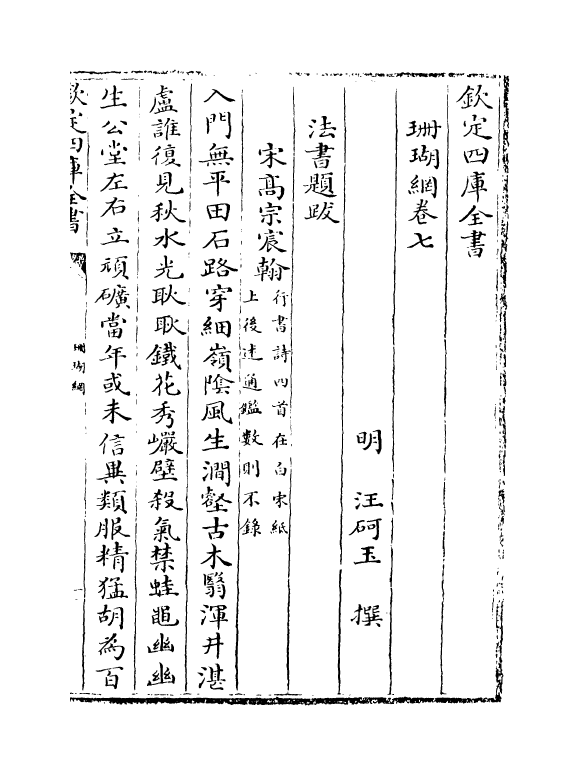 欽定四庫全書
珊瑚網卷七
明　汪砢玉　撰
法書題跋
宋髙宗宸翰行書詩四首在白宋紙
上後述通鑑數則不錄
入門無平田石路穿細嶺隂風生澗壑古木翳渾井湛
盧誰復見秋水光耿耿鐵花秀巖壁殺氣禁蛙黽幽幽
生公堂左右立頑礦當年或未信異類服精猛胡為百
欽定四庫全書
珊瑚網
一